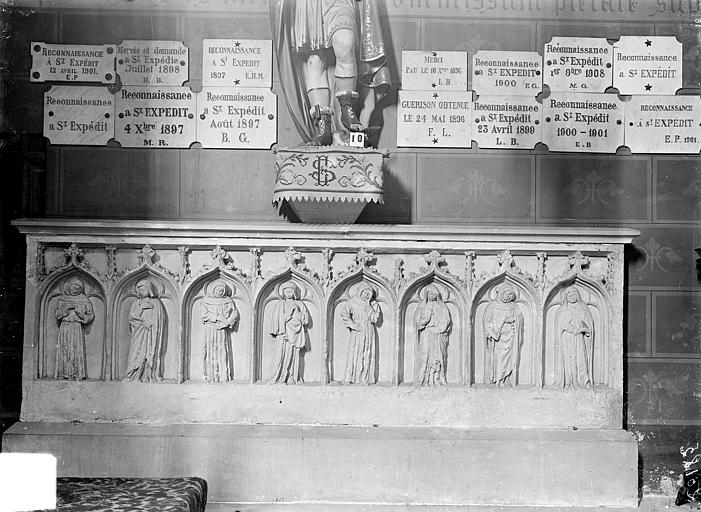 Reconnaissance
à St Expédit
12 Avril 1901.
E.P
Mercie et demande
à St Expédie
Juillet 1898
M. B.
Reconnaissance
A St EXPEDIT
1897 E.H.M.
Merci
Pau le 10 Xbre 1896
L B
Reconnaissance
a St EXPEDIT
1900 F.G.
Reconnaissance
a St EXPEDIT
1er 9bre 1908
M. G.
Reconnaissance
a St EXPEDIT
Reconnaissance
à St Expédit
Reconnaissance
a St EXPEDIT
4 Xbre 1897
M. R.
Reconnaissance
a St Expédit
Août 1897
B. G.
GUERISON OBTENUE
LE 24 MAI 1896
F. L.
Reconnaissance
a St EXPEDIT
23 Avril 1899
L. B.
Reconnaissance
a St EXPEDIT
1900 - 1901
E. B
RECONNAISSANCE
à St EXPEDIT
E.P. 1901.
10